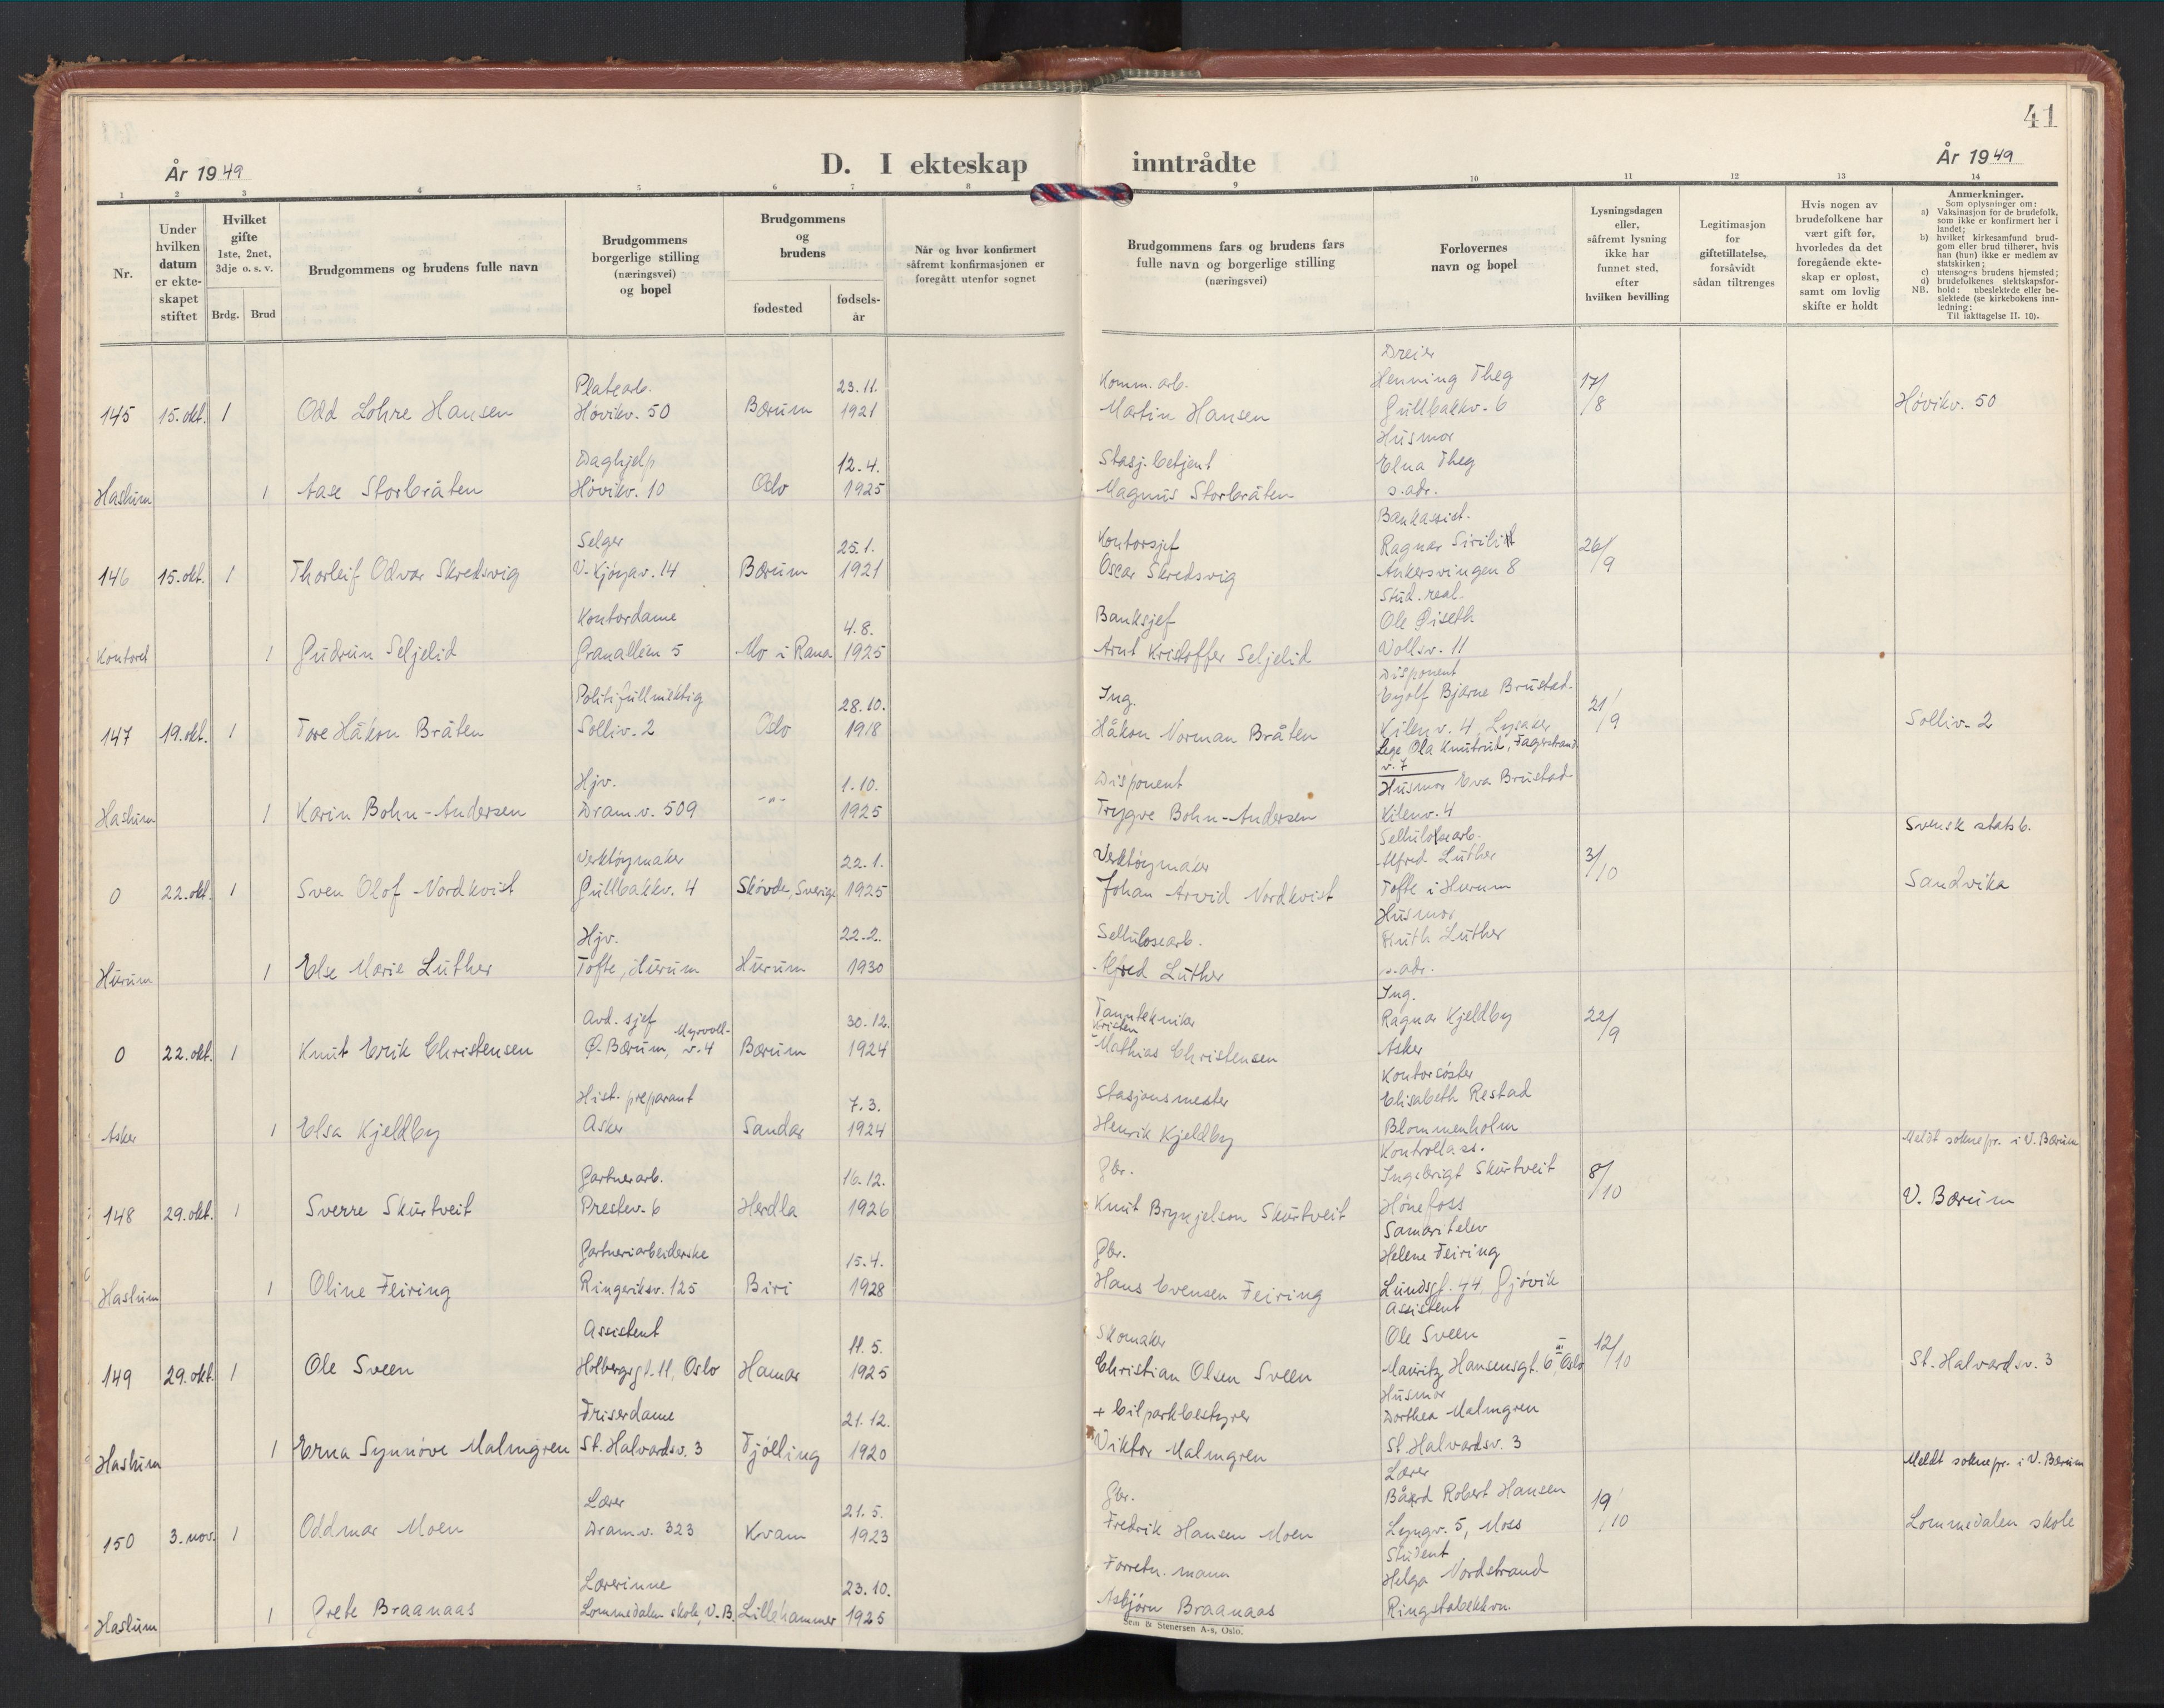 41
År 1949
D. I ekteskap
inntrådte
År 1949
1 2 3 4 5 6 7 8 9 10 11 12 13 14
Nr.
Under hvilken datum er ekte-skapet stiftet
Hvilket gifte 1ste, 2net, 3dje o. s. v.
Brdg. Brud
Brudgommens og brudens fulle navn
Brudgommens borgerlige stilling (næringsvei) og bopel
Brudgommens og brudens
fødested
fødsels-år
Når og hvor konfirmert såfremt konfirmasjonen er foregått utenfor sognet
Brudgommens fars og brudens fars fulle navn og borgerlige stilling (næringsvei)
Forlovernes navn og bopel
Lysningsdagen eller, såfremt lysning ikke har funnet sted, efter hvilken bevilling
Legitimasjon for giftetillatelse, forsåvidt sådan tiltrenges
Hvis nogen av brudefolkene har vært gift før, hvorledes da det foregående ekte-skap er opløst, samt om lovlig skifte er holdt
Anmerkninger.
Som oplysninger om:
a) Vaksinasjon for de brudefolk, som ikke er konfirmert her i landet;
b) hvilket kirkesamfund brud-gom eller brud tilhører, hvis han (hun) ikke er medlem av statskirken;
c) utensogns brudens hjemsted;
d) brudefolkenes slektskapsfor-hold: ubeslektede eller be-slektede (se kirkebokens inn-ledning:
NB.
Til iakttagelse II. 10).
Dreier
Platearb. 23.11. Komm. arb. Henning Theg 17/8
145 15. okt. 1 Odd Lohre Hansen Høvikv. 50 Bærum 1921 Martin Hansen Gullbakkv. 6 Høvikv. 50
Husmor
Daghjelp 12.4. Stasj. betjent Elna Theg
Haslum 1 Aase Storbråten Høvikv. 10 Oslo 1925 Magnus Storbråten s. adr.
Bankassist.
Selger 25.1. Kontorsjef Ragnar 26/9
146 15. okt. 1 Thorleif Odvar Skredsvig V. Kjørgav. 14 Bærum 1921 Oscar Skredsvig Ankersvingen 8
Stud. real.
Kontordame 4.8. Banksjef Ole Øiseth
Kontoret 1 Gudrun Seljelid Granalléen 5 Mo i Rana 1925 Arnt Kristoffer Seljelid Vollsv. 11
Disponent
Politifullmektig 28.10. Ing. Eyolf Bjarne Brustad 21/9
147 19. okt. 1 Tore Håkon Bråten Solliv. 2 Oslo 1918 Håkon Norman Bråten Kilenv. 4, Lysaker Solliv. 2
Lege Ola Knutrud, Fagerstrand
v. 7
Hjv. 1.10. Disponent Husmor Eva Brustad
Haslum 1 Karin Bohn-Andersen Dram.v. 509 -"- 1925 Trygve Bohn-Andersen Kilenv. 4
Svensk statsb.
Sellulosearb.
Verktøymaker 22.1. Verktøymaker Alfred Luther 3/10
0 22. okt. 1 Sven Olof Nordkvist Gullbakkv. 4 Skövde, Sverige 1925 Johan Arvid Nordkvist Tofte i Hurum Sandvika
Husmor
Hjv. 22.2. Sellulosearb. Ruth Luther
Hurum 1 Else Marie Luther Tofte, Hurum Hurum 1930 Alfred Luther s. adr.
Ing.
Avd. sjef 30.12. Tanntekniker Ragnar Kjeldby 22/9
Myrvoll- Kristen
0 22. okt. 1 Knut Erik Christensen Ø. Bærum, v. 4 Bærum 1924 Mathias Christensen Asker
Kontorsøster
Hist. preparant 7.3. Stasjonsmester Elisabeth Restad
Asker 1 Elsa Kjeldby Asker Sandar 1924 Henrik Kjeldby Blommenholm
Meldt soknepr. i V. Bærum
Kontrollass.
Gartnerarb. 16.12. Gbr. Ingebrigt Skurtveit 8/10
148 29. okt. 1 Sverre Skurtveit Prestev. 6 Herdla 1926 Knut Brynjelson Skurtveit Hønefoss V. Bærum
Samaritelev
Gartneriarbeiderske 15.4. Gbr. Helene Feiring
Haslum 1 Oline Feiring Ringeriksv. 125 Biri 1928 Hans Evensen Feiring Lundsgt. 44, Gjøvik
Assistent
Assistent 11.5. Skomaker Ole Sveen 12/10
149 29. okt. 1 Ole Sveen Holbergsgt. 11, Oslo Hamar 1925 Christian Olsen Sveen Mauritz Hansensgt. 6 III, Oslo St. Halvardsv. 3
Husmor
Friserdame 21.12. + bilparkbestyrer Dorthea Malmgren
Haslum 1 Erna Synnøve Malmgren St. Halvardsv. 3 Tjølling 1920 Viktor Malmgren St. Halvardsv. 3
Meldt soknepr. i V. Bærum
Lærer
Lærer 21.5. Gbr. Bård Robert Hansen 19/10
150 3. nov. 1 Oddmar Moen Dram.v. 323 Kvam 1923 Fredrik Hansen Moen Lyngv. 5, Moss Lommedalen skole
Student
Lærerinne 23.10. Forretn. mann Helga Nordstrand
Haslum 1 Grete Braanaas Lommedalen skole, V.B. Lillehammer 1925 Asbjørn Braanaas Ringstabekkvn.
Sem & Stenersen A-s, Oslo.